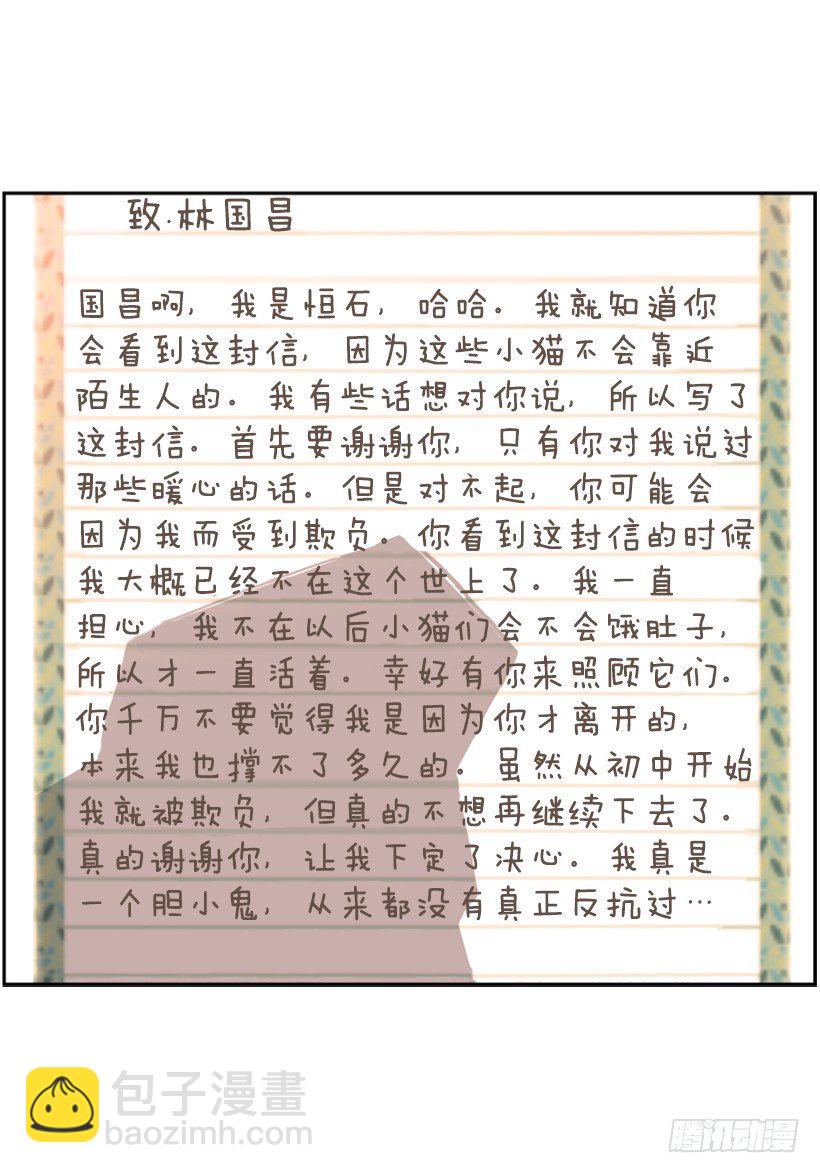 致·林国昌
国昌啊，我是恒石，哈哈。我就知道你
会看到这封信，因为这些小猫不会靠近
陌生人的。我有些话想对你说，所以写了
这封信。首先要谢谢你，只有你对我说过
那些暖心的话。但是对不起，你可能会
因为我而受到欺负。你看到这封信的时候
我大概已经不在这个世上了。我一直
担心，我不在以后小猫们会不会饿肚子，
所以才一直活着。幸好有你来照顾它们。
你千万不要觉得我是因为你才离开的，
本来我也撑不了多久的。虽然从初中开始
我就被欺负，但真的不想再继续下去了。
真的谢谢你，让我下定了决心。我真是
一个胆小鬼，从来都没有真正反抗过…
包子漫畫
baozimh.com
腾讯动漫